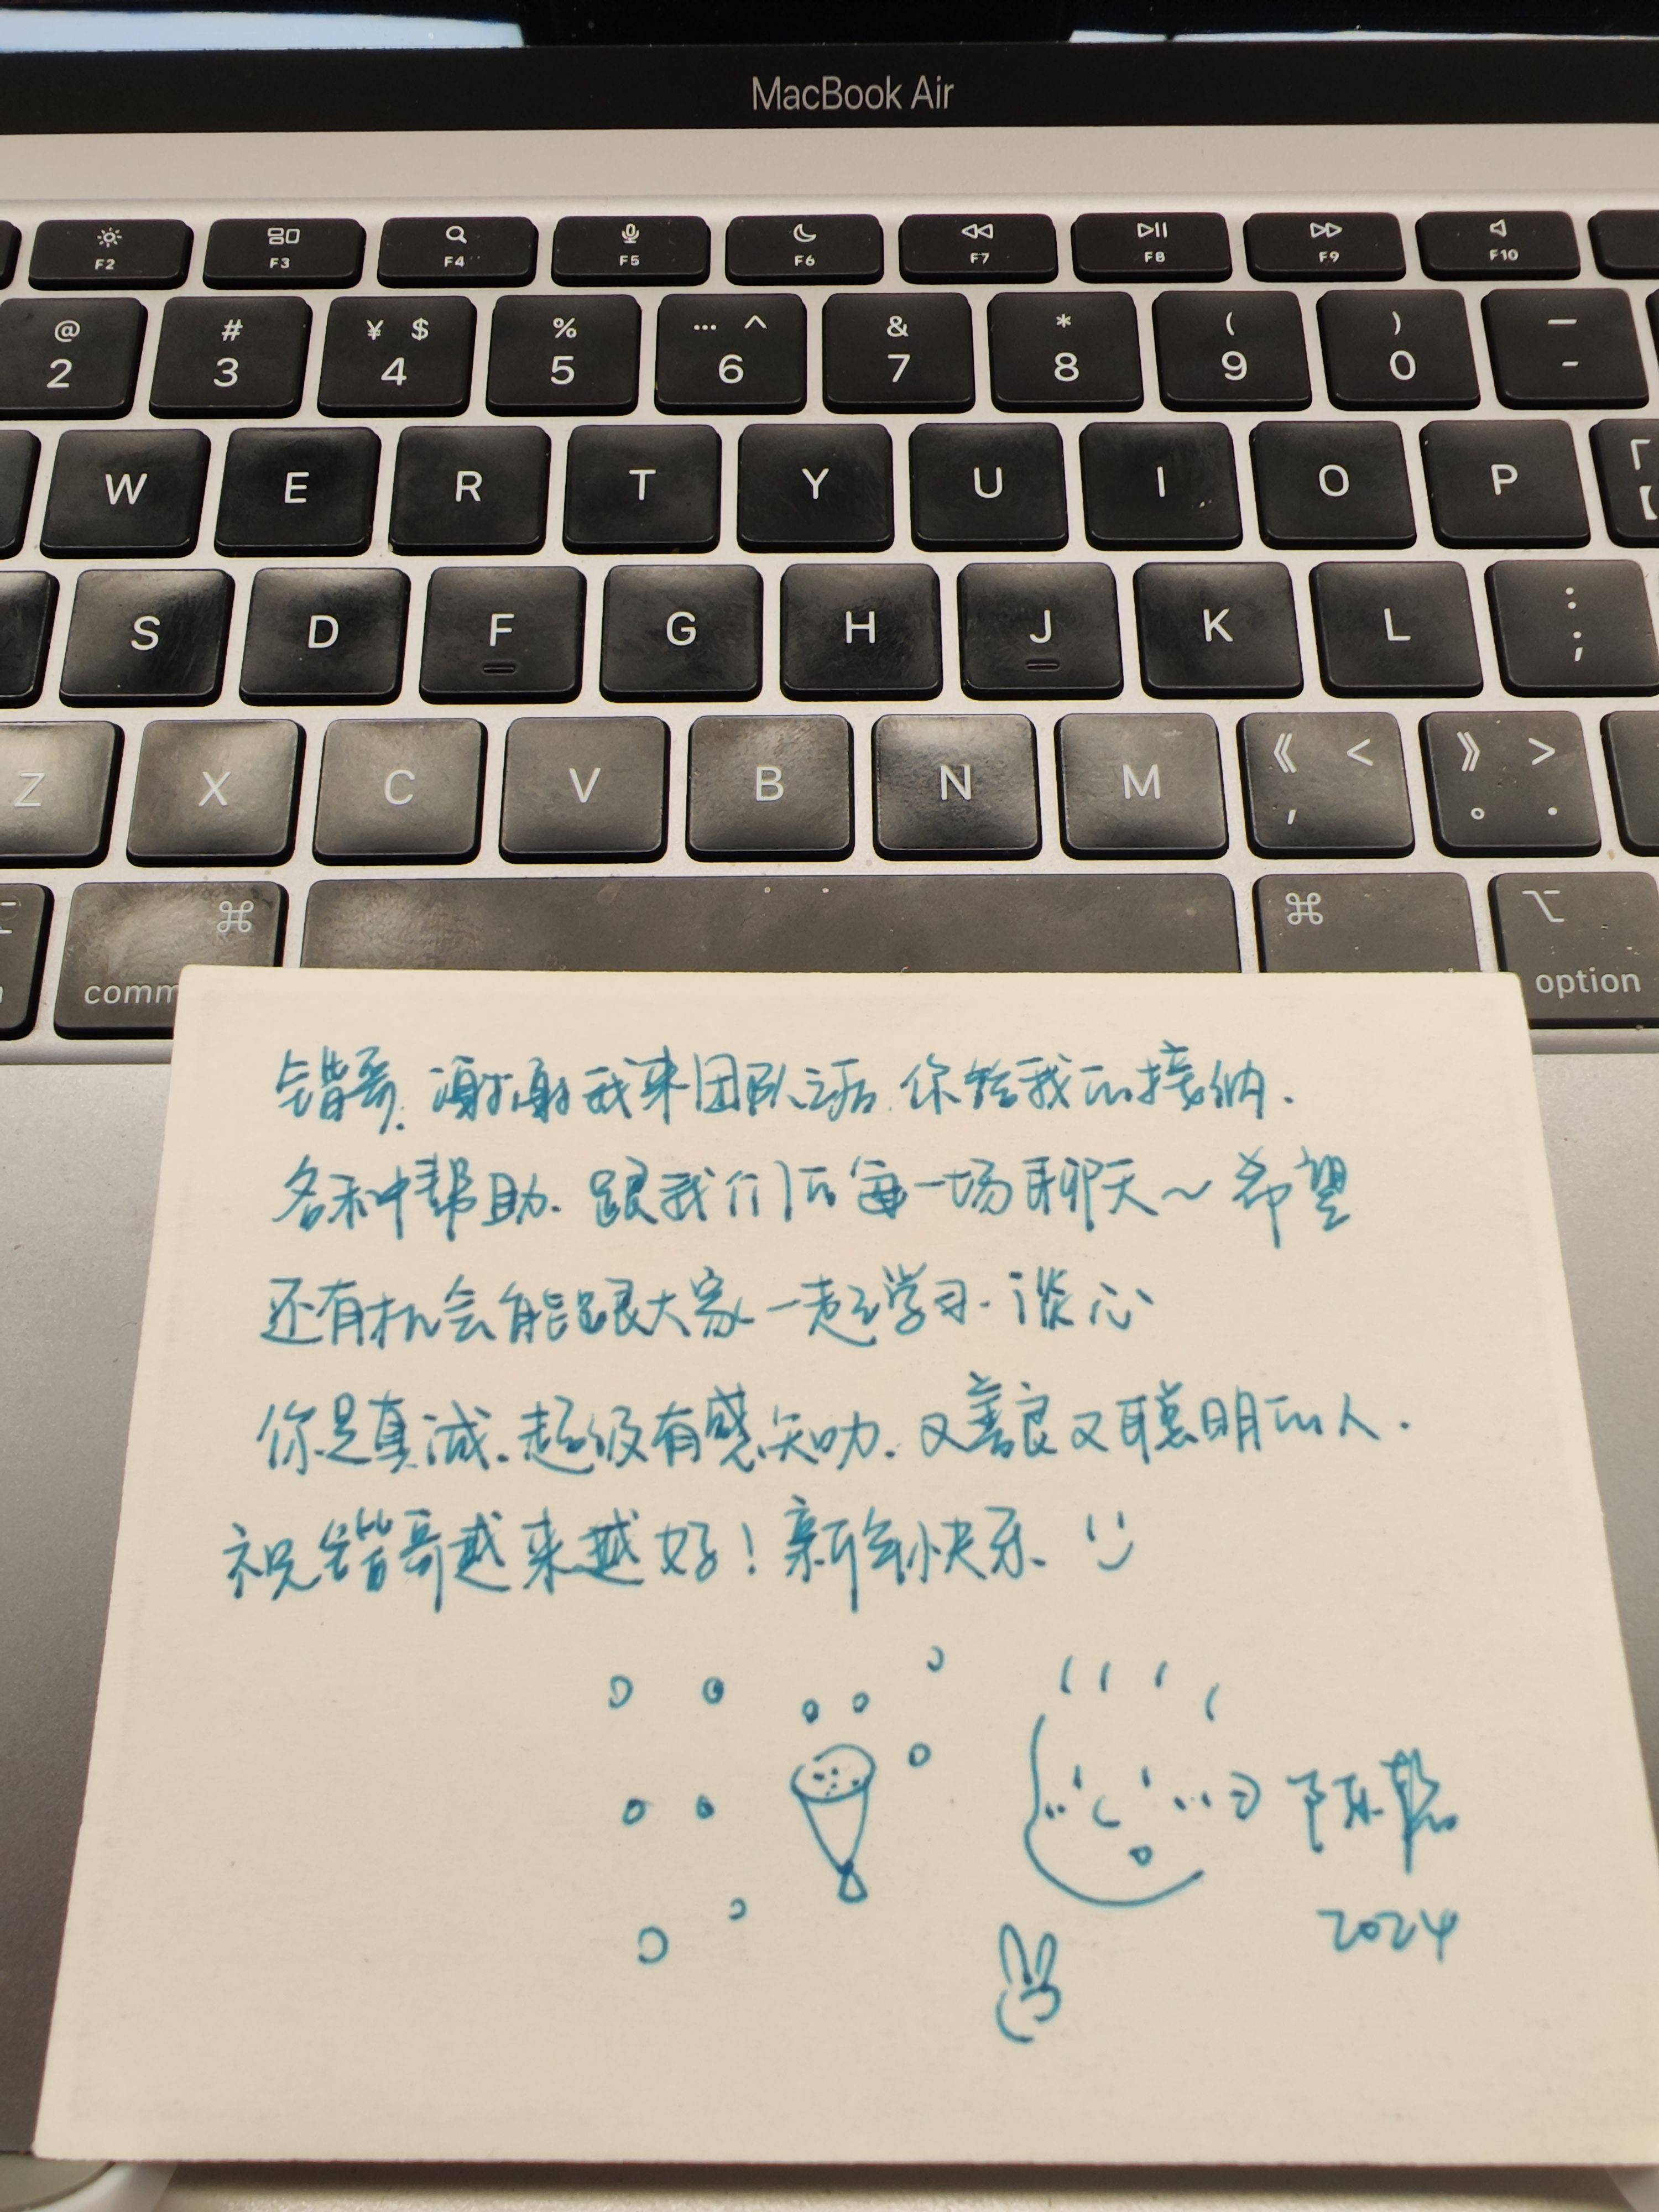 MacBook Air
F2 F3 F4 F5 F6 F7 F8 F9 F10
@ 2 # 3 ¥ $ 4 % 5 … ^ 6 & 7 * 8 ( 9 ) 0 — -
W E R T Y U I O P 「 【
S D F G H J K L : ;
Z X C V B N M 《 < , 》 > 。 .
comm ⌘ ⌘ ⌥ option
锴哥, 谢谢我来团队之后, 你给我的接纳.
各种帮助. 跟我们的每一场聊天~希望
还有机会能跟大家一起学习. 谈心
你是真诚. 超级有感知力. 又善良又聪明的人.
祝锴哥越来越好! 新年快乐、
陈
2024